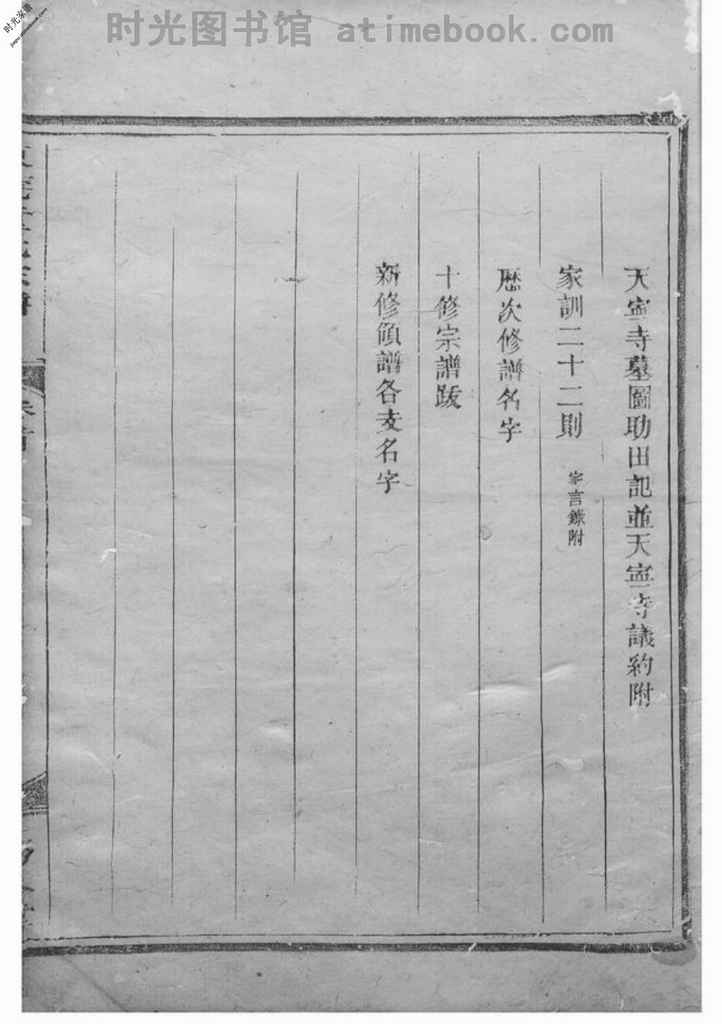 时光图书馆 atimebook.com
时光家谱
天寧寺墓圖助田記並天寧寺議約附
家訓二十二則 家言錄附
歷次修譜名字
十修宗譜跋
新修領譜各支名字
卷首